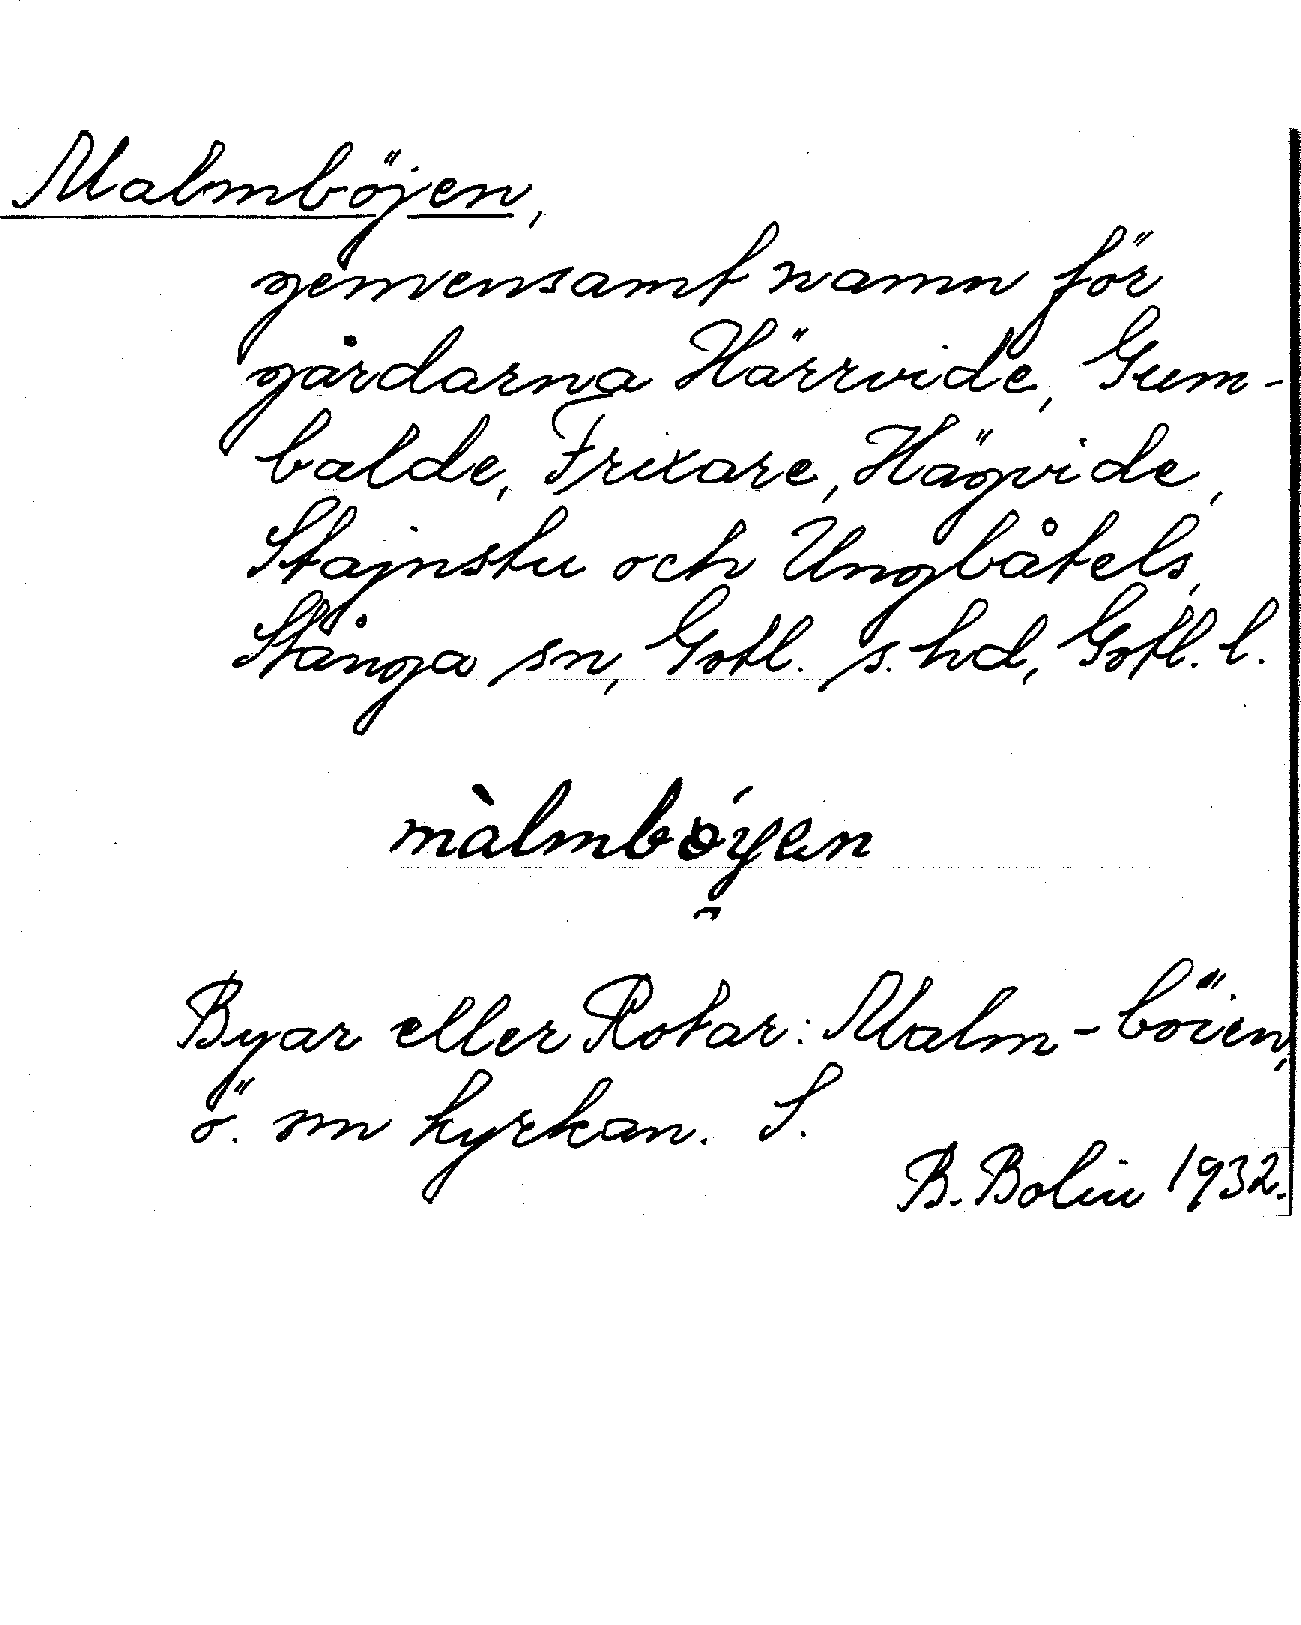 Malmböjen,
gemensamt namn för
gårdarna Härrvide, Gum-
balde, Frixare, Hägvide,
Stajnstu och Ungbåtels,
Stånga sn, Gotl. s. hd, Gotl. l.
màlmbǿyen
Byar eller Rotar: Malm-böien,
ö. om kyrkan. S.
B. Bolin 1932.